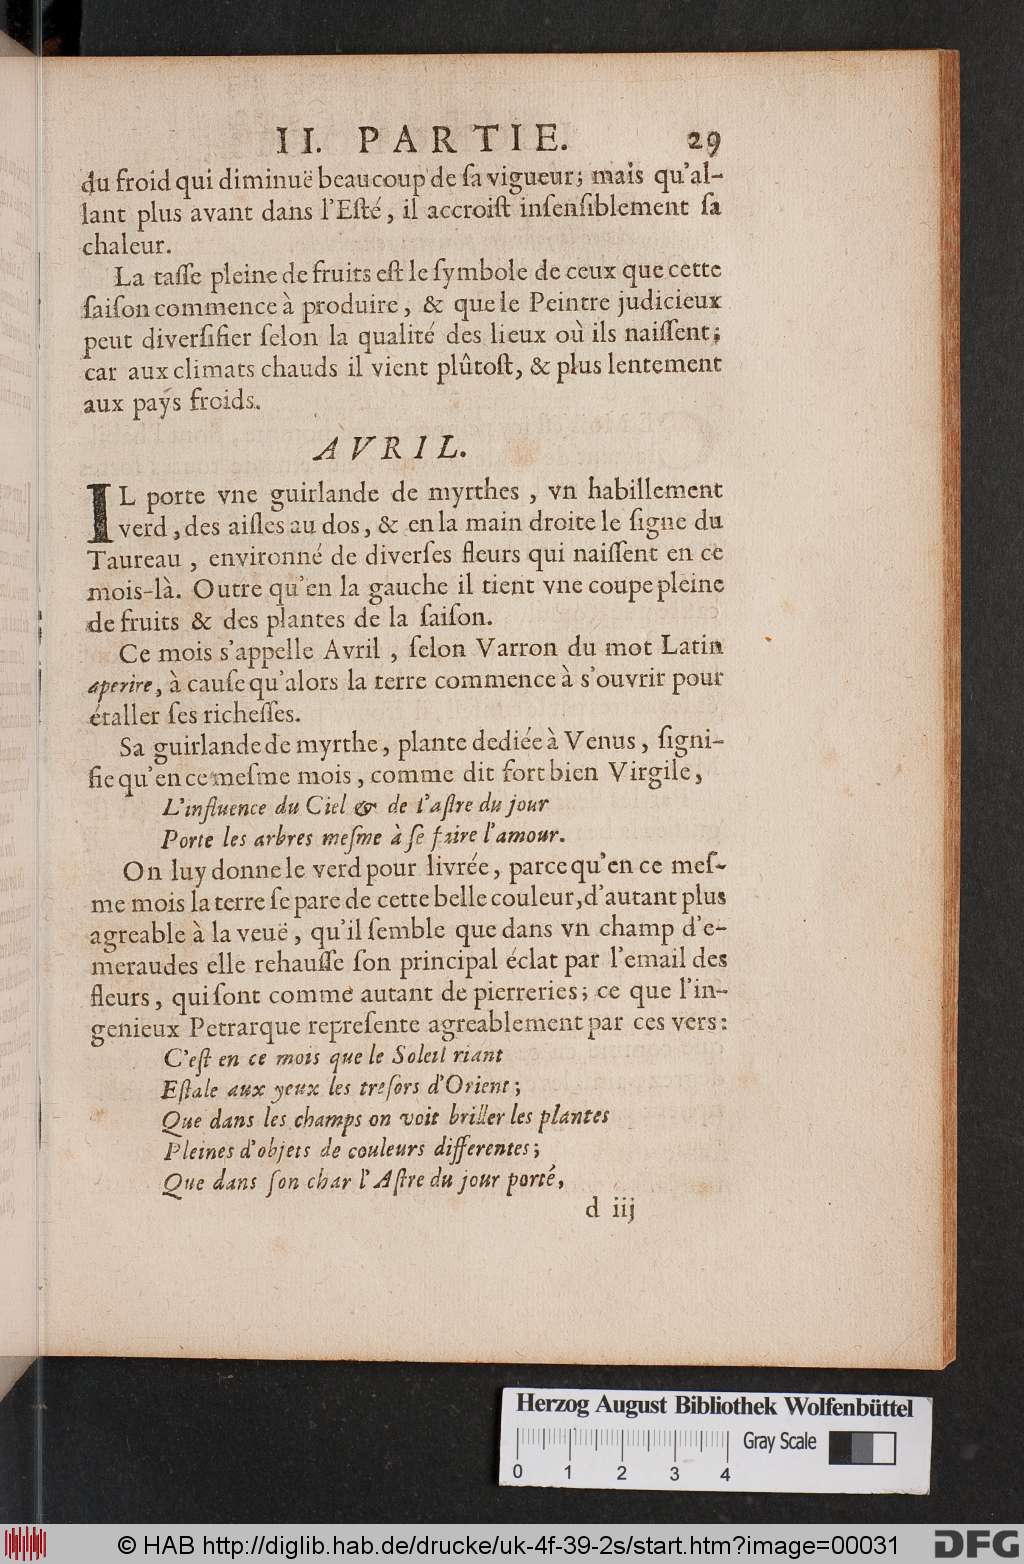 II. PARTIE. 29
du froid qui diminuë beaucoup de ſa vigueur; mais qu'al-
lant plus avant dans l'Eſté, il accroiſt inſenſiblement ſa
chaleur.
La taſſe pleine de fruits eſt le ſymbole de ceux que cette
ſaiſon commence à produire, & que le Peintre judicieux
peut diverſifier ſelon la qualité des lieux où ils naiſſent;
car aux climats chauds il vient plûtoſt, & plus lentement
aux paÿs froids.
AVRIL.
IL porte vne guirlande de myrthes, vn habillement
verd, des aiſles au dos, & en la main droite le ſigne du
Taureau, environné de diverſes fleurs qui naiſſent en ce
mois-là. Outre qu'en la gauche il tient vne coupe pleine
de fruits & des plantes de la ſaiſon.
Ce mois s'appelle Avril, ſelon Varron du mot Latin
aperire, à cauſe qu'alors la terre commence à s'ouvrir pour
étaller ſes richeſſes.
Sa guirlande de myrthe, plante dediée à Venus, ſigni-
fie qu'en ce meſme mois, comme dit fort bien Virgile,
L'influence du Ciel & de l'aſtre du jour
Porte les arbres meſme à ſe faire l'amour.
On luy donne le verd pour livrée, parce qu'en ce meſ-
me mois la terre ſe pare de cette belle couleur, d'autant plus
agreable à la veuë, qu'il ſemble que dans vn champ d'e-
meraudes elle rehauſſe ſon principal éclat par l'email des
fleurs, qui ſont comme autant de pierreries; ce que l'in-
genieux Petrarque repreſente agreablement par ces vers:
C'eſt en ce mois que le Soleil riant
Eſtale aux yeux les treſors d'Orient;
Que dans les champs on voit briller les plantes
Pleines d'objets de couleurs differentes;
Que dans ſon char l'Aſtre du jour porté,
d iij
Herzog August Bibliothek Wolfenbüttel
Gray Scale
0 1 2 3 4
© HAB http://diglib.hab.de/drucke/uk-4f-39-2s/start.htm?image=00031
DFG